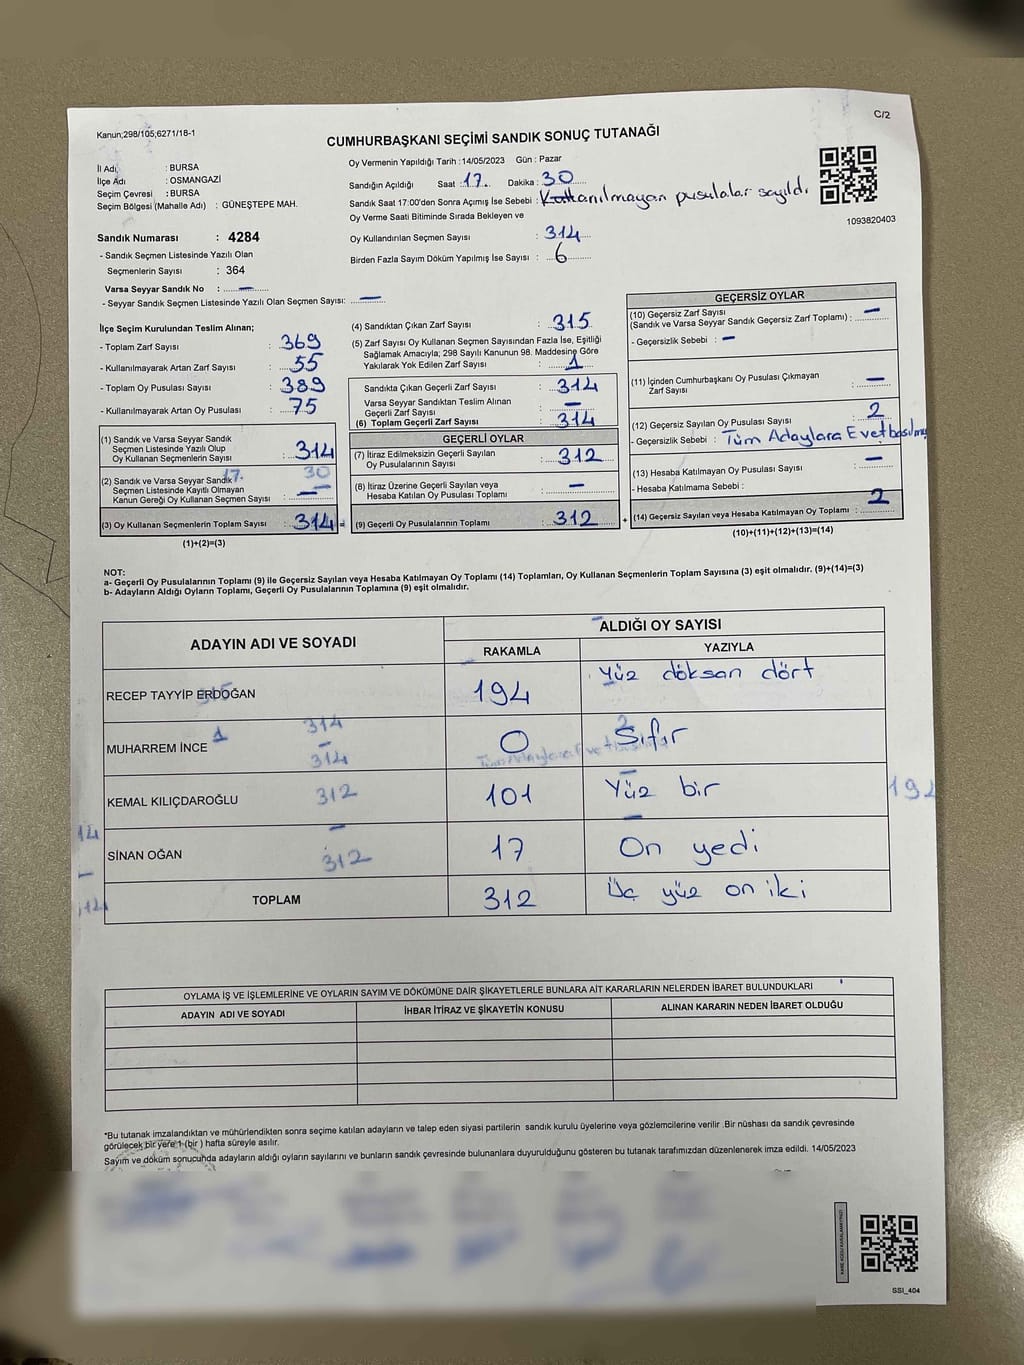 Kanun;298/105;6271/18-1
C/2
CUMHURBAŞKANI SEÇİMİ SANDIK SONUÇ TUTANAĞI
İl Adı : BURSA
İlçe Adı : OSMANGAZİ
Seçim Çevresi : BURSA
Seçim Bölgesi (Mahalle Adı) : GÜNEŞTEPE MAH.
Oy Vermenin Yapıldığı Tarih : 14/05/2023 Gün : Pazar
Sandığın Açıldığı Saat : 17. Dakika : 30
Sandık Saat 17:00'den Sonra Açımış İse Sebebi : Kullanılmayan pusulalar sayıldı.
Oy Verme Saati Bitiminde Sırada Bekleyen ve
Oy Kullandırılan Seçmen Sayısı : 314
Birden Fazla Sayım Döküm Yapılmış İse Sayısı : 6
1093820403
Sandık Numarası : 4284
- Sandık Seçmen Listesinde Yazılı Olan
Seçmenlerin Sayısı : 364
Varsa Seyyar Sandık No : —
- Seyyar Sandık Seçmen Listesinde Yazılı Olan Seçmen Sayısı: —
İlçe Seçim Kurulundan Teslim Alınan;
- Toplam Zarf Sayısı : 369
- Kullanılmayarak Artan Zarf Sayısı : 55
- Toplam Oy Pusulası Sayısı : 389
- Kullanılmayarak Artan Oy Pusulası : 75
(1) Sandık ve Varsa Seyyar Sandık
Seçmen Listesinde Yazılı Olup
Oy Kullanan Seçmenlerin Sayısı : 314
(2) Sandık ve Varsa Seyyar Sandık 17. 30
Seçmen Listesinde Kayıtlı Olmayan
Kanun Gereği Oy Kullanan Seçmen Sayısı : —
(3) Oy Kullanan Seçmenlerin Toplam Sayısı : 314 =
(1)+(2)=(3)
(4) Sandıktan Çıkan Zarf Sayısı : 315
(5) Zarf Sayısı Oy Kullanan Seçmen Sayısından Fazla İse, Eşitliği
Sağlamak Amacıyla; 298 Sayılı Kanunun 98. Maddesine Göre
Yakılarak Yok Edilen Zarf Sayısı : 1
Sandıkta Çıkan Geçerli Zarf Sayısı : 314
Varsa Seyyar Sandıktan Teslim Alınan
Geçerli Zarf Sayısı : —
(6) Toplam Geçerli Zarf Sayısı : 314
GEÇERLİ OYLAR
(7) İtiraz Edilmeksizin Geçerli Sayılan
Oy Pusulalarının Sayısı : 312
(8) İtiraz Üzerine Geçerli Sayılan veya
Hesaba Katılan Oy Pusulası Toplamı : —
(9) Geçerli Oy Pusulalarının Toplamı : 312 +
GEÇERSİZ OYLAR
(10) Geçersiz Zarf Sayısı
(Sandık ve Varsa Seyyar Sandık Geçersiz Zarf Toplamı) : —
- Geçersizlik Sebebi : —
(11) İçinden Cumhurbaşkanı Oy Pusulası Çıkmayan
Zarf Sayısı : —
(12) Geçersiz Sayılan Oy Pusulası Sayısı : 2
- Geçersizlik Sebebi : Tüm Adaylara Evet basılmış
(13) Hesaba Katılmayan Oy Pusulası Sayısı : —
- Hesaba Katılmama Sebebi :
(14) Geçersiz Sayılan veya Hesaba Katılmayan Oy Toplamı : 2
(10)+(11)+(12)+(13)=(14)
NOT:
a- Geçerli Oy Pusulalarının Toplamı (9) ile Geçersiz Sayılan veya Hesaba Katılmayan Oy Toplamı (14) Toplamları, Oy Kullanan Seçmenlerin Toplam Sayısına (3) eşit olmalıdır. (9)+(14)=(3)
b- Adayların Aldığı Oyların Toplamı, Geçerli Oy Pusulalarının Toplamına (9) eşit olmalıdır.
ADAYIN ADI VE SOYADI
ALDIĞI OY SAYISI
RAKAMLA YAZIYLA
RECEP TAYYİP ERDOĞAN 194 Yüz doksan dört
315
MUHARREM İNCE 1 314 0 Sıfır 2
314 Tüm Adaylara Evet basılmış
KEMAL KILIÇDAROĞLU 312 101 Yüz bir
192
14
SİNAN OĞAN 312 17 On yedi
TOPLAM 312 Üç yüz on iki
OYLAMA İŞ VE İŞLEMLERİNE VE OYLARIN SAYIM VE DÖKÜMÜNE DAİR ŞİKAYETLERLE BUNLARA AİT KARARLARIN NELERDEN İBARET BULUNDUKLARI
ADAYIN ADI VE SOYADI İHBAR İTİRAZ VE ŞİKAYETİN KONUSU ALINAN KARARIN NEDEN İBARET OLDUĞU
*Bu tutanak imzalandıktan ve mühürlendikten sonra seçime katılan adayların ve talep eden siyasi partilerin sandık kurulu üyelerine veya gözlemcilerine verilir .Bir nüshası da sandık çevresinde
görülecek bir yere 1 (bir ) hafta süreyle asılır.
Sayım ve döküm sonucunda adayların aldığı oyların sayılarını ve bunların sandık çevresinde bulunanlara duyurulduğunu gösteren bu tutanak tarafımızdan düzenlenerek imza edildi. 14/05/2023
SSI_404